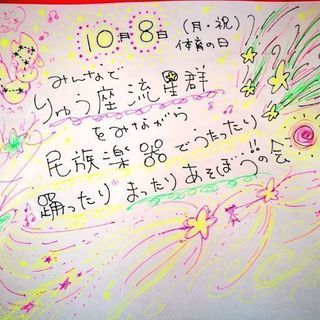 10月8日(月・祝)
体育の日
みんなで
りゅう座流星群
をみながら
民族楽器でうたったり
踊ったりまったりあそぼうの会